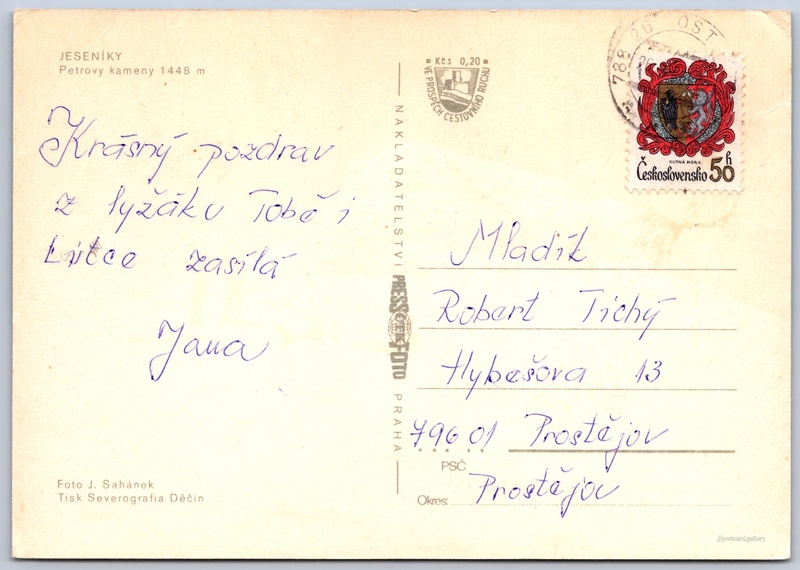 JESENÍKY
Petrovy kameny 1448 m
Krásný pozdrav
z lyžáku Tobě i
zasílá
Jana
Foto J. Sahánek
Tisk Severografia Děčín
Kčs 0,20
VE PROSPĚCH CESTOVNÍHO RUCHU
NAKLADATELSTVÍ
PRESSFOTO
PRAHA
788 20 OST
KUTNÁ HORA
Československo 50 h
Mladík
Robert Tichý
Hybešova 13
796 01 Prostějov
PSČ
Okres: Prostějov
//postcard.gallery